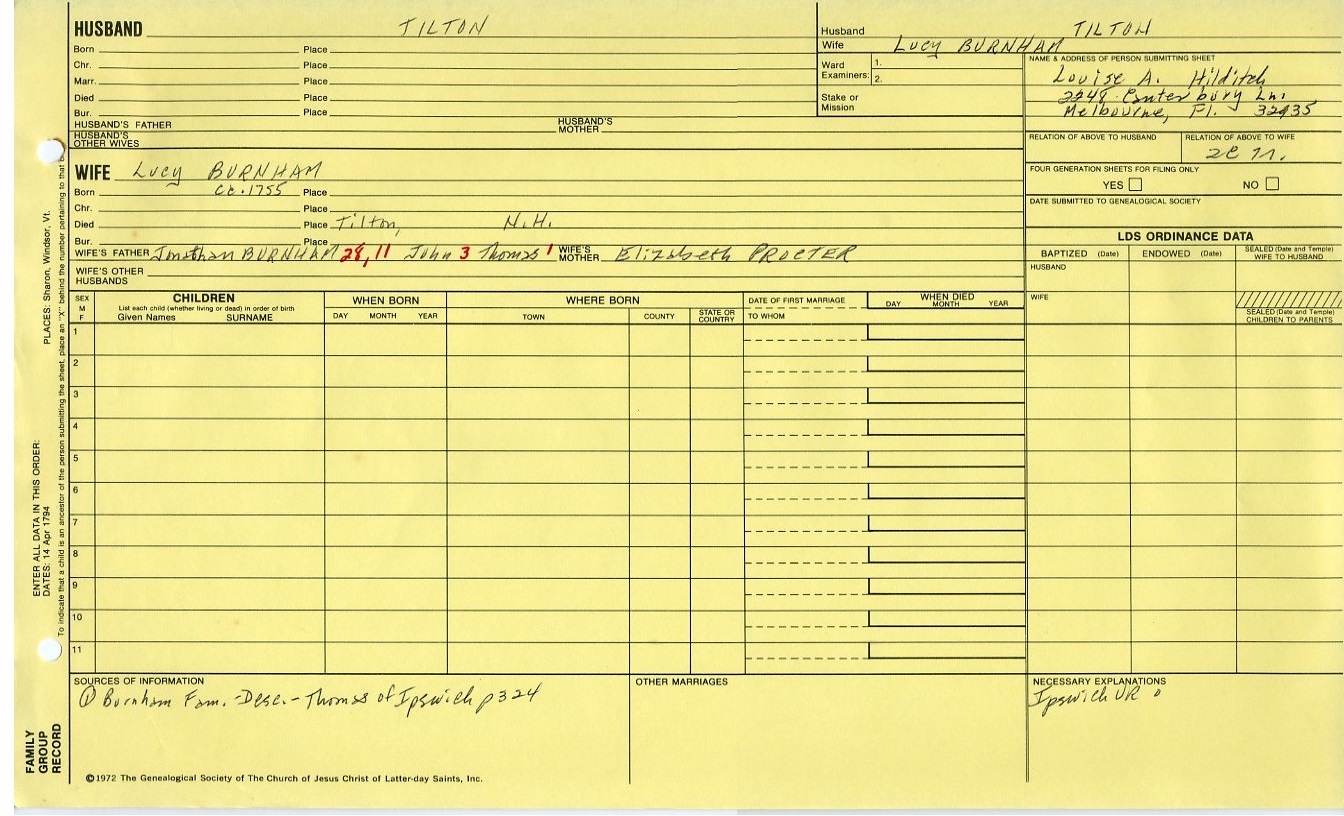 HUSBAND TILTON
Born Place
Chr. Place
Marr. Place
Died Place
Bur. Place
HUSBAND'S FATHER HUSBAND'S MOTHER
HUSBAND'S OTHER WIVES
Husband TILTON
Wife Lucy BURNHAM
Ward Examiners: 1.
2.
Stake or Mission
NAME & ADDRESS OF PERSON SUBMITTING SHEET
Louise A. Hilditch
2248 Canterbury Ln.
Melbourne, Fl. 32935
RELATION OF ABOVE TO HUSBAND RELATION OF ABOVE TO WIFE
FOUR GENERATION SHEETS FOR FILING ONLY
YES NO
DATE SUBMITTED TO GENEALOGICAL SOCIETY
WIFE Lucy BURNHAM
Born ca. 1755 Place
Chr. Place
Died Place Tilton, N.H.
Bur. Place
WIFE'S FATHER Jonathan BURNHAM 28, 11 John 3 Thomas 1 WIFE'S MOTHER Elizabeth PROCTER
WIFE'S OTHER HUSBANDS
LDS ORDINANCE DATA
BAPTIZED (Date) ENDOWED (Date) SEALED (Date and Temple) WIFE TO HUSBAND
HUSBAND
WIFE
SEALED (Date and Temple) CHILDREN TO PARENTS
SEX M F
CHILDREN
List each child (whether living or dead) in order of birth
Given Names SURNAME
WHEN BORN
DAY MONTH YEAR
WHERE BORN
TOWN COUNTY STATE OR COUNTRY
DATE OF FIRST MARRIAGE
TO WHOM
WHEN DIED
DAY MONTH YEAR
1
2
3
4
5
6
7
8
9
10
11
SOURCES OF INFORMATION
① Burnham Fam. -Desc.- Thomas of Ipswich p324
OTHER MARRIAGES
NECESSARY EXPLANATIONS
Ipswich VR
©1972 The Genealogical Society of The Church of Jesus Christ of Latter-day Saints, Inc.
FAMILY GROUP RECORD
ENTER ALL DATA IN THIS ORDER:
DATES: 14 Apr 1794 PLACES: Sharon, Windsor, Vt.
To indicate that a child is an ancestor of the person submitting the sheet, place an "X" behind the number pertaining to that